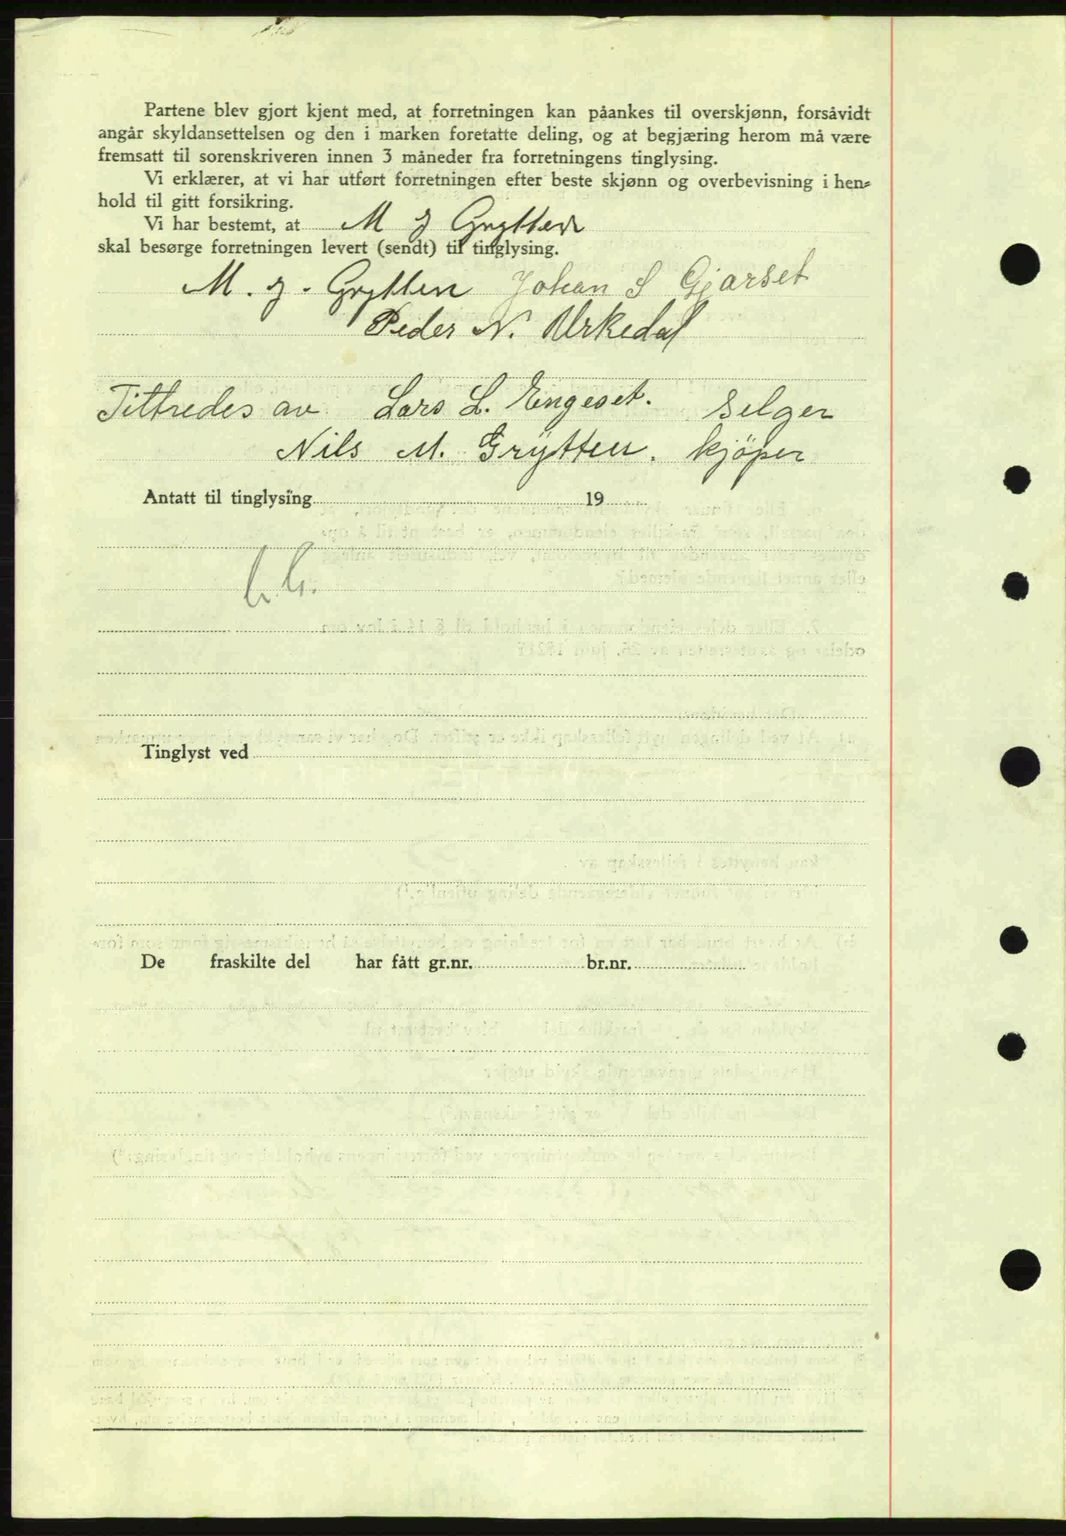 Partene blev gjort kjent med, at forretningen kan påankes til overskjønn, forsåvidt
angår skyldansettelsen og den i marken foretatte deling, og at begjæring herom må være
fremsatt til sorenskriveren innen 3 måneder fra forretningens tinglysing.
Vi erklærer, at vi har utført forretningen efter beste skjønn og overbevisning i hen-
hold til gitt forsikring.
Vi har bestemt, at M J Grytten
skal besørge forretningen levert (sendt) til tinglysing.
M. J. Grytten Johan S Gjørset
Peder N. Urkedal
Tiltredes av Lars L. Engeset. selger
Nils M. Grytten. kjöper
Antatt til tinglysing 19
Tinglyst ved
De fraskilte del har fått gr.nr. br.nr.